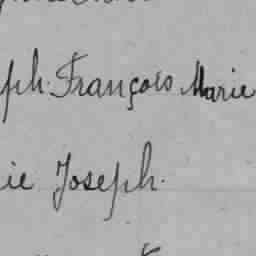 ph. François Marie
ie Joseph.